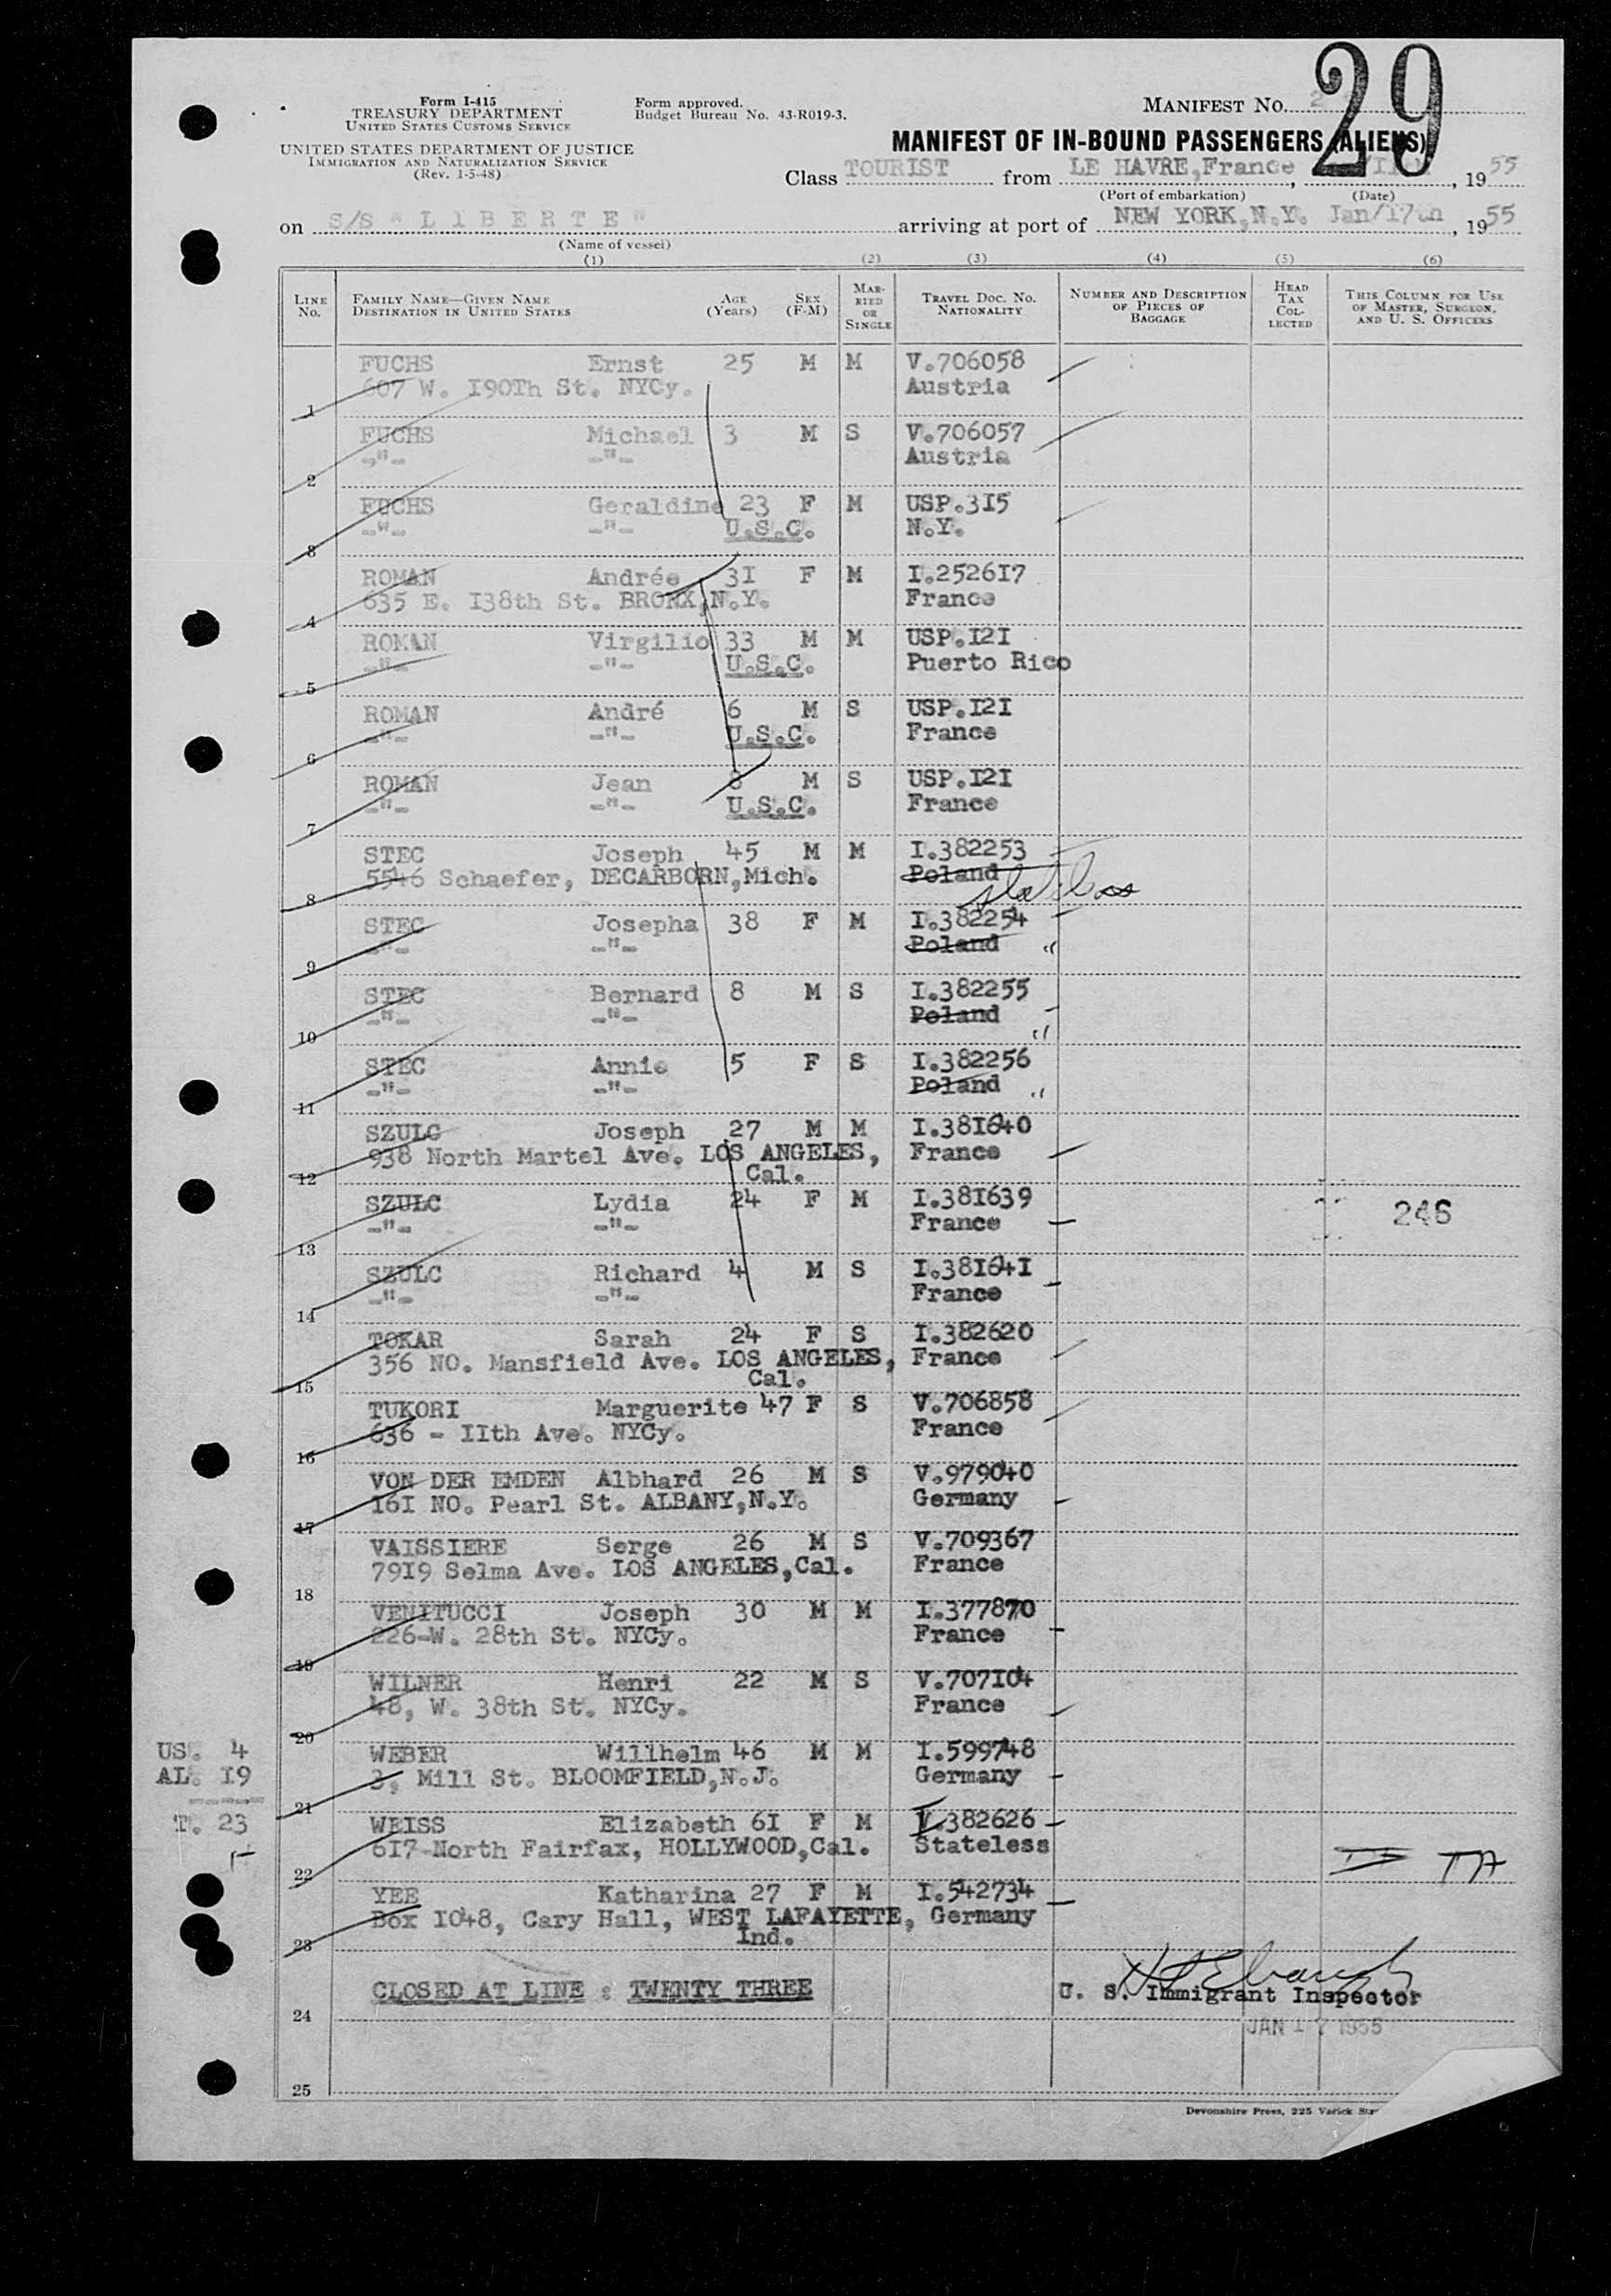 Form I-415
TREASURY DEPARTMENT
UNITED STATES CUSTOMS SERVICE
UNITED STATES DEPARTMENT OF JUSTICE
IMMIGRATION AND NATURALIZATION SERVICE
(Rev. 1-5-48)
Form approved.
Budget Bureau No. 43-R019-3.
MANIFEST NO.
29
MANIFEST OF IN-BOUND PASSENGERS (ALIENS)
Class TOURIST from LE HAVRE,France , 1955
(Port of embarkation) (Date)
on S/S " L I B E R T E " arriving at port of NEW YORK,N.Y. Jan/17th , 1955
(Name of vessel)
(1) (2) (3) (4) (5) (6)
LINE No. FAMILY NAME—GIVEN NAME DESTINATION IN UNITED STATES AGE (Years) SEX (F-M) MARRIED OR SINGLE TRAVEL DOC. NO. NATIONALITY NUMBER AND DESCRIPTION OF PIECES OF BAGGAGE HEAD TAX COLLECTED THIS COLUMN FOR USE OF MASTER, SURGEON, AND U. S. OFFICERS
FUCHS Ernst 25 M M V.706058
607 W. I90Th St. NYCy. Austria
1
FUCHS Michael 3 M S V.706057
-"- -"- Austria
2
FUCHS Geraldine 23 F M USP.3I5
-"- -"- U.S.C. N.Y.
3
ROMAN Andrée 3I F M I.2526I7
635 E. I38th St. BRONX,N.Y. France
4
ROMAN Virgilio 33 M M USP.I2I
-"- -"- U.S.C. Puerto Rico
5
ROMAN André 6 M S USP.I2I
-"- -"- U.S.C. France
6
ROMAN Jean 8 M S USP.I2I
-"- -"- U.S.C. France
7
STEC Joseph 45 M M I.382253
5546 Schaefer, DECARBORN,Mich. Poland stateless
8
STEC Josepha 38 F M I.382254
-"- -"- Poland "
9
STEC Bernard 8 M S I.382255
-"- -"- Poland "
10
STEC Annie 5 F S I.382256
-"- -"- Poland "
11
SZULC Joseph 27 M M I.38I640
938 North Martel Ave. LOS ANGELES, France
Cal.
12
SZULC Lydia 24 F M I.38I639
-"- -"- France 246
13
SZULC Richard 4 M S I.38I64I
-"- -"- France
14
TOKAR Sarah 24 F S I.382620
356 NO. Mansfield Ave. LOS ANGELES, France
Cal.
15
TUKORI Marguerite 47 F S V.706858
636 - IIth Ave. NYCy. France
16
VON DER EMDEN Albhard 26 M S V.979040
I6I NO. Pearl St. ALBANY,N.Y. Germany
17
VAISSIERE Serge 26 M S V.709367
79I9 Selma Ave. LOS ANGELES,Cal. France
18
VENITUCCI Joseph 30 M M I.377870
226-W. 28th St. NYCy. France
19
WILNER Henri 22 M S V.707I04
48, W. 38th St. NYCy. France
20
US. 4 WEBER Willhelm 46 M M I.599748
AL. I9 3, Mill St. BLOOMFIELD,N.J. Germany
21
T. 23 WEISS Elizabeth 6I F M I.382626
6I7-North Fairfax, HOLLYWOOD,Cal. Stateless
22
YEE Katharina 27 F M I.542734
Box I048, Cary Hall, WEST LAFAYETTE, Germany
Ind.
23
CLOSED AT LINE : TWENTY THREE
U. S. Immigrant Inspector
24
JAN 17 1955
25
Devonshire Press, 225 Varick